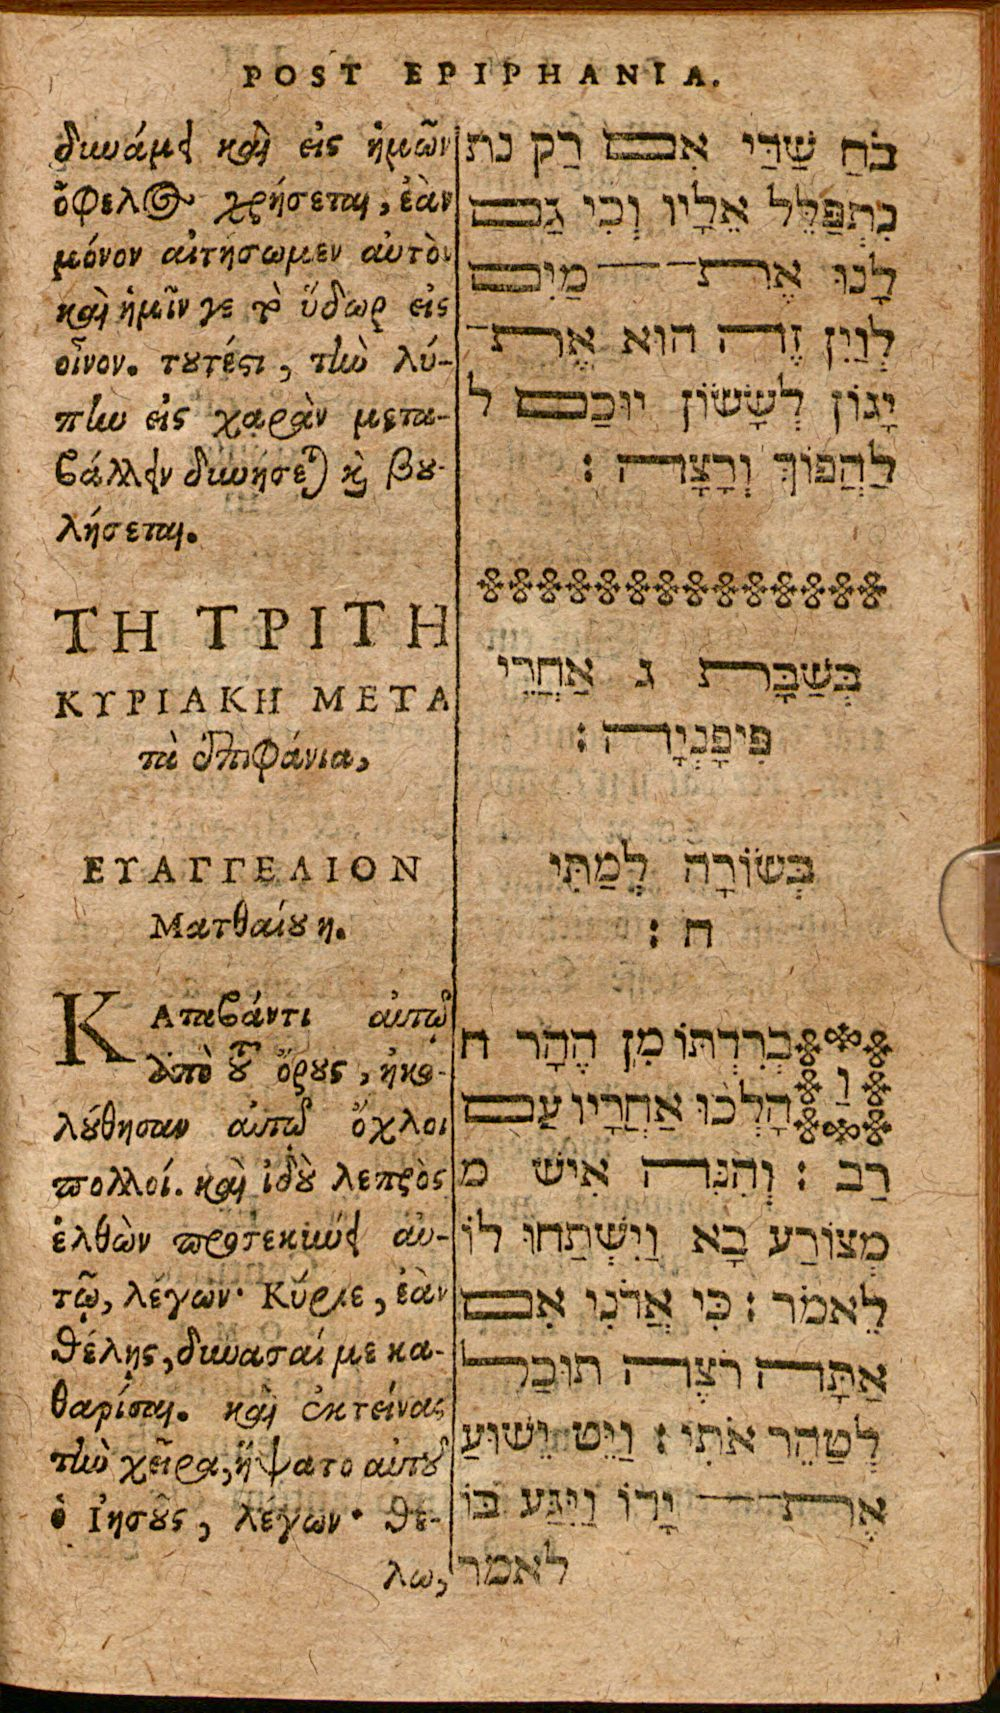 POST EPIPHANIA.
δυνάμει καὶ εἰς ἡμῶν
ὄφελος χρήσεται, ἐὰν
μόνον αἰτήσωμεν αὐτὸν
καὶ ἡμῖν γε τὸ ὕδωρ εἰς
οἶνον. τουτέστι, τὴν λύ-
πην εἰς χαρὰν μετα-
βάλλειν δυνήσεται καὶ βου-
λήσεται.
ΤΗ ΤΡΙΤΗ
ΚΥΡΙΑΚΗ ΜΕΤΑ
τὰ ἐπιφάνια,
ΕΥΑΓΓΕΛΙΟΝ
Ματθαίου η.
ΚΑταβάντι αὐτῷ
ἀπὸ τοῦ ὄρους, ἠκο-
λούθησαν αὐτῷ ὄχλοι
πολλοί. καὶ ἰδοὺ λεπρὸς
ἐλθὼν προσεκύνει αὐ-
τῷ, λέγων· Κύριε, ἐὰν
θέλῃς, δύνασαί με κα-
θαρίσαι. καὶ ἐκτείνας
τὴν χεῖρα, ἥψατο αὐτοῦ
ὁ Ἰησοῦς, λέγων· θέ-
λω,
כֹּחַ שַׁדַּי אִם רַק נת
נִתְפַּלֵּל אֵלָיו וְכִי גַּם
לָנוּ אֶת מַיִם
לְיַיִן זֶה הוּא אֶת
יָגוֹן לְשָׂשׂוֹן יוּכַם ל
לַהֲפוֹךְ וְרָצָה :
בְּשַׁבָּת ג אַחֲרֵי
פִיפָנְיָה :
בְּשׂוֹרָה לְמַתִּי
ח :
וַ בְרִדְתּוֹ מִן הָהָר ח
הָלְכוּ אַחֲרָיו עַם
רַב : וְהִנֵּה אִישׁ מ
מְצוֹרַע בָּא וַיִּשְׁתַּחוּ לוֹ
לֵאמֹר : כִּי אֲדֹנִי אִם
אַתָּה רֹצֶה תוּכַל
לְטַהֵר אֹתִי : וַיֵּט יֵשׁוּעַ
אֶת יָדוֹ וַיִּגַּע בּוֹ
לאמר